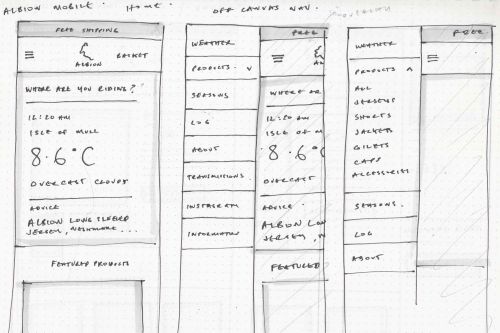 ALBION MOBILE. HOME. OFF CANVAS NAV.
FREE SHIPPING
ALBION
BASKET
WHERE ARE YOU RIDING?
12:20 AM
ISLE OF MULL
8.6°C
OVERCAST CLOUDY
ADVICE
ALBION LONG SLEEVED
JERSEY,
FEATURED PRODUCTS
WEATHER
PRODUCTS. V
SEASONS
LOG
ABOUT
TRANSMISSIONS.
INSTAGRAM
INFORMATION
FREE
AL
WHERE AR
12:20 AM
ISLE OF M
8.6°C
OVERCAST
ADVICE
ALBION LON
JERSEY, M
FEATURED
WEATHER
PRODUCTS ^
ALL
JERSEYS
SHORTS
JACKETS
GILETS
CAPS
ACCESSORIES
SEASONS.
LOG
ABOUT
FREE